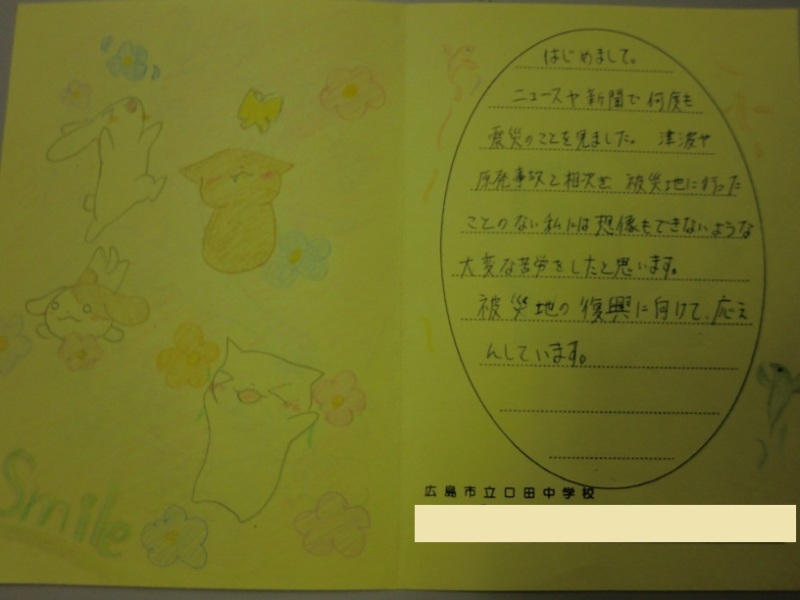 Smile
はじめまして。
ニュースや新聞で何度も
震災のことを見ました。津波や
原発事故と相次ぎ、被災地に行った
ことのない私には想像もできないような
大変な苦労をしたと思います。
被災地の復興に向けて、応え
んしています。
広島市立口田中学校